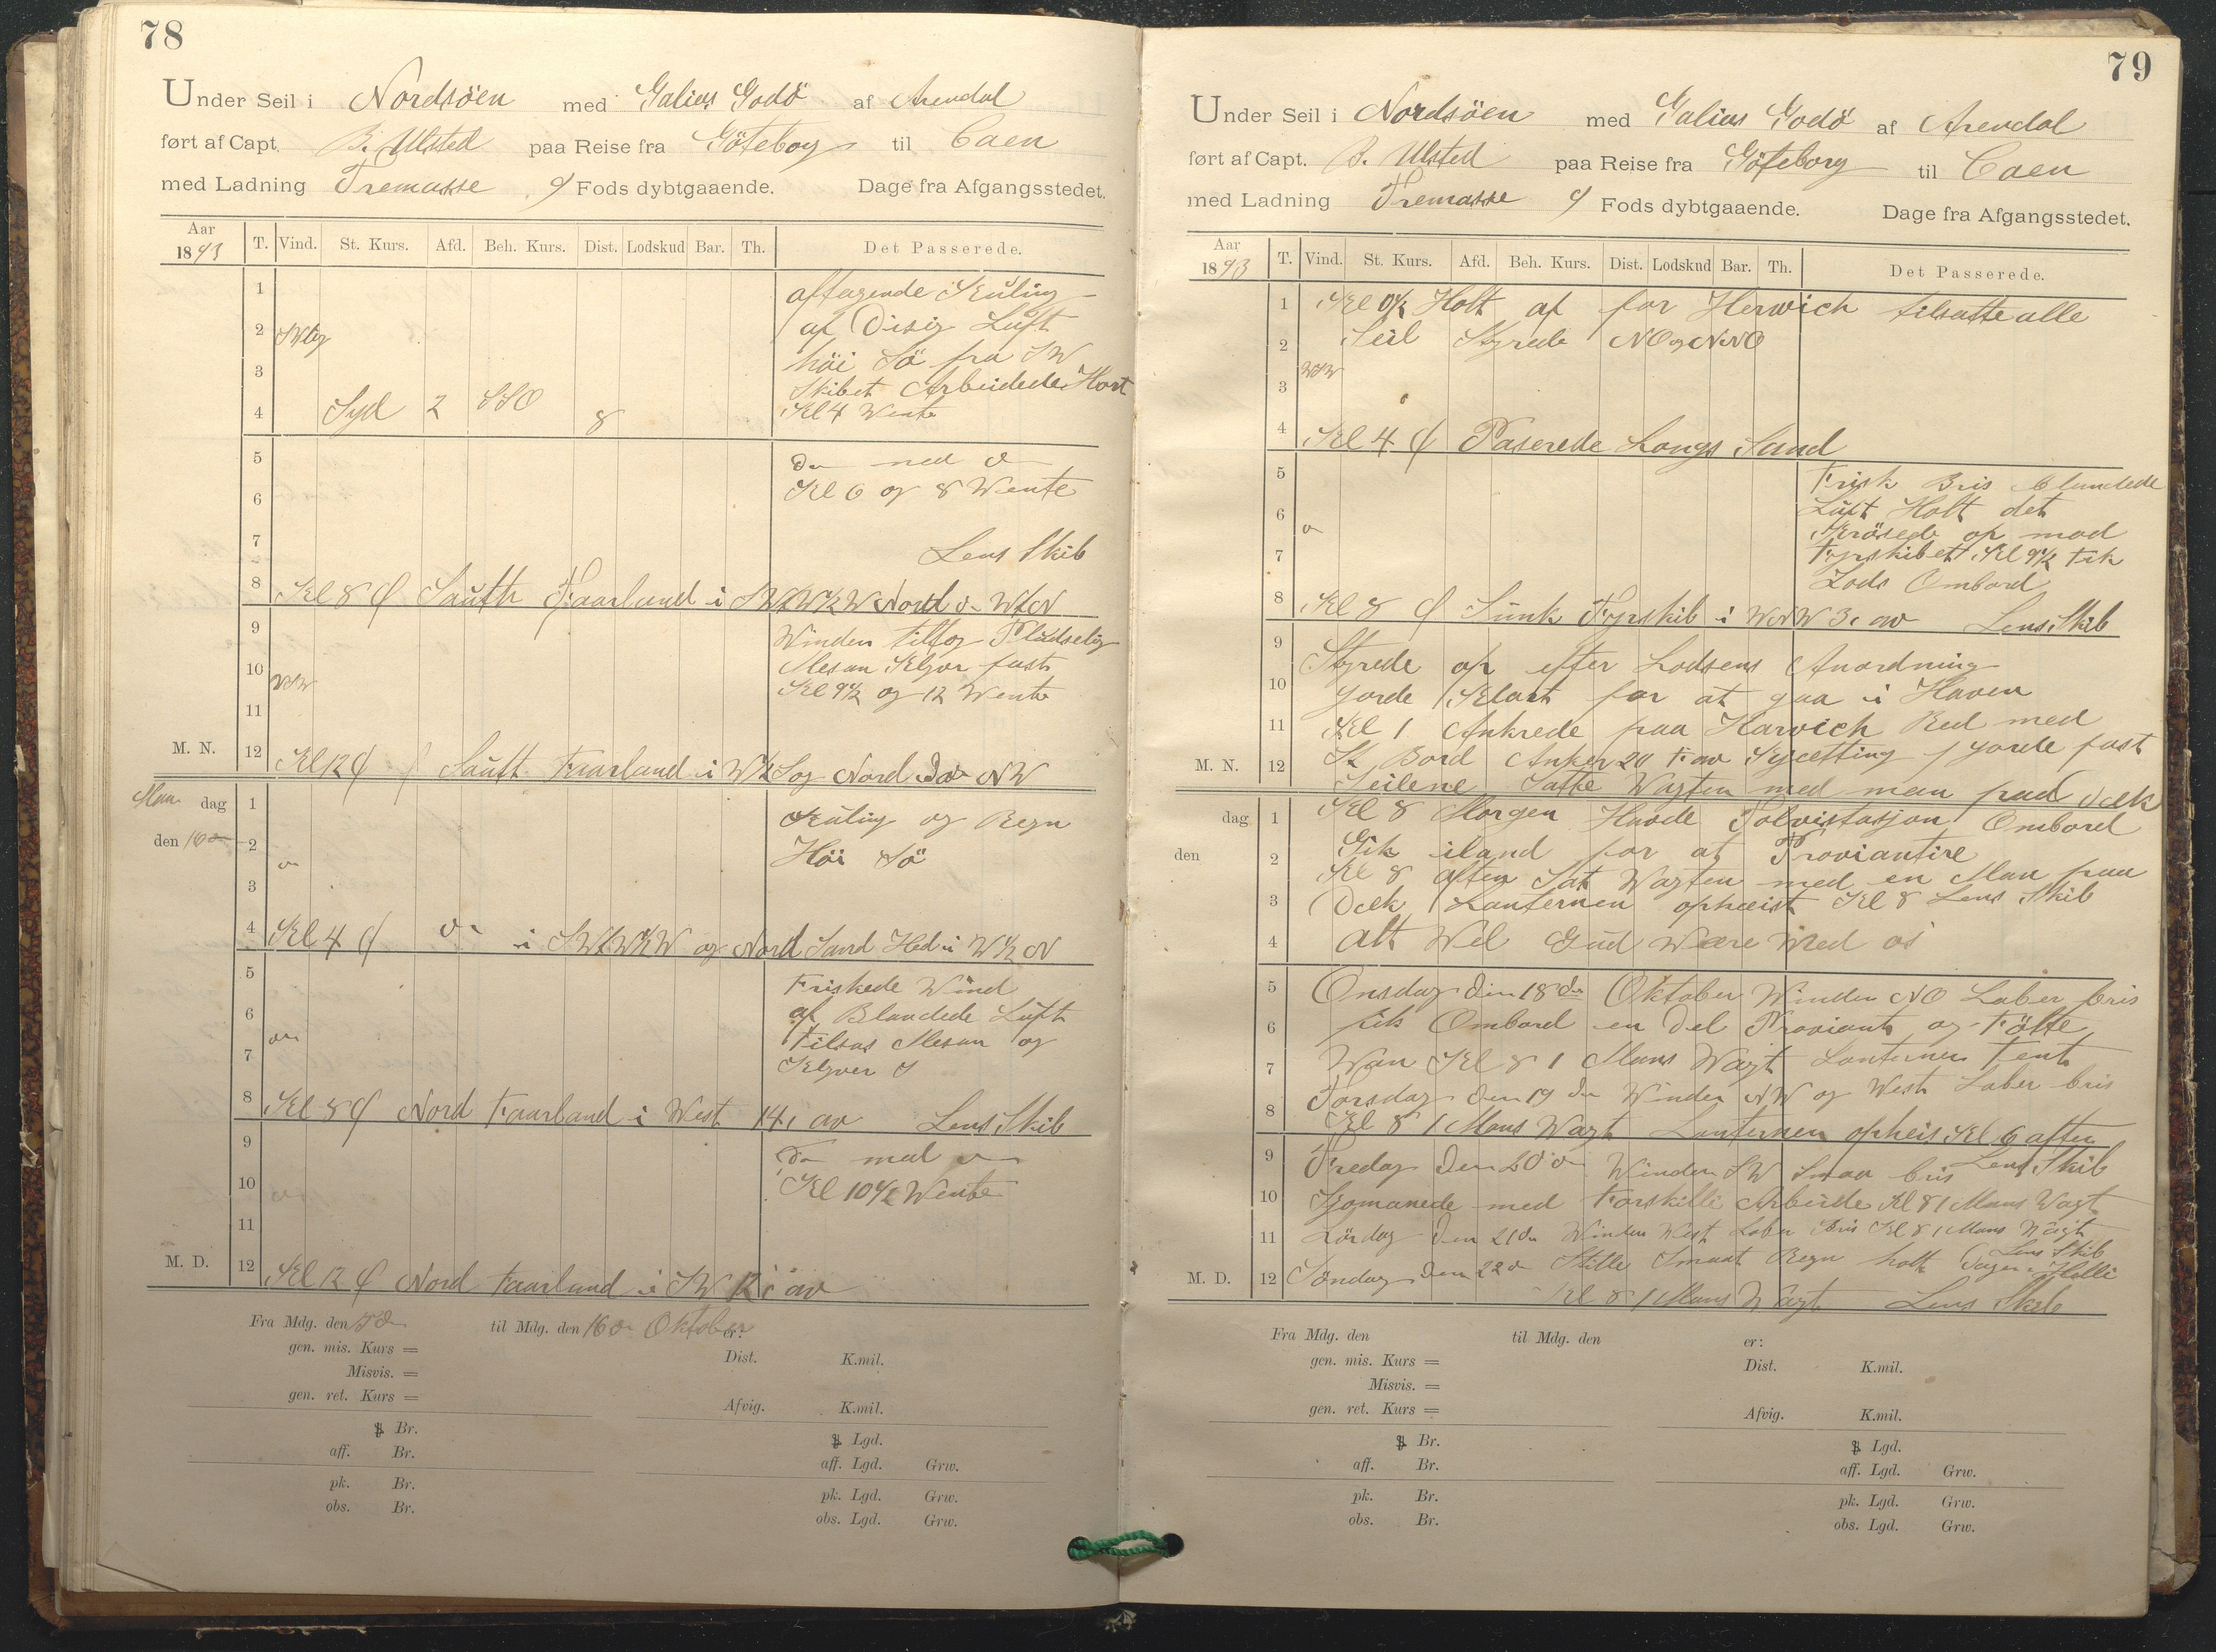 78
Under Seil i Nordsöen med Galias Godö af Arendal
ført af Capt. B. Ulsted paa Reise fra Göteborg til Caen
med Ladning Tremasse 9 Fods dybtgaaende. Dage fra Afgangsstedet.
Aar 1893 T. Vind. St. Kurs. Afd. Beh. Kurs. Dist. Lodskud Bar. Th. Det Passerede.
1 aftagende Kuling
2 af Disig Luft
höi Sö fra SW
3 Skibet Arbeidede Hart
4 Syd 2 SSO 8 Kl 4 Wente
5 Do med do
6 Kl 6 og 8 Wente
7 Lens Skib
8 Kl 8 Sauth Faarland i Nord WtN
9 Winden tiltog Pludselig
10 WSW Mesan Klyver fast
Kl 9½ og 12 Wente
11
M. N. 12 Kl 12 Sauft Faarland i og Nord NW
Man dag 1 Kuling og Regn
den 16 2 Höi Sö
3
4 Kl 4 i og Nord Sand Hed i
5 Friskede Wind
6 af Blandede Luft
Tilsas Mesan og
7 Klyver
8 Kl 8 Nord Faarland i West 14, av Lens Skib
9 Do med do
10 Kl 10½ Wente
11
M. D. 12 Kl 12 Nord Faarland i SW 12, av
Fra Mdg. den til Mdg. den 16 Oktober er:
gen. mis. Kurs = Dist. K.mil.
Misvis. =
gen. ret. Kurs = Afvig. K.mil.
Br. Lgd.
aff. Br. aff. Lgd. Grw.
pk. Br. pk. Lgd. Grw.
obs. Br. obs. Lgd. Grw.
79
Under Seil i Nordsöen med Galias Godö af Arendal
ført af Capt. B. Ulsted paa Reise fra Göteborg til Caen
med Ladning Tremasse 9 Fods dybtgaaende. Dage fra Afgangsstedet.
Aar 1893 T. Vind. St. Kurs. Afd. Beh. Kurs. Dist. Lodskud Bar. Th. Det Passerede.
1 Kl 0½ Holt af for Herwich tilsatte alle
2 Seil Styrede NO og NNO
3 WSW
4 Kl 4 Paserede Longs Sand
5 Frisk Bris Blandede
6 Luft Holt det
Krösede op mod
7 Fyrskibet Kl 9½ Fik
Lods Ombord
8 Kl 8 Sunk Fyrskib i WNW 3, av Lens Skib
9 Styrede op efter Lodsens Anordning
10 gorde Klart for at gaa i Haven
11 Kl 1 Ankrede paa Harwich Red med
M. N. 12 St Bord Anker 20 gorde fast
Seilene Satte Wagten med man paa Dæk
dag 1 Kl 8 Morgen Havde Ombord
den 2 Gik iland for at Proviantire
Kl 8 aften Sat Wagten med en Man paa
3 Dæk Lanternen opheist Kl 8 Lens Skib
4 alt Wel Gud Wære Med os
5 Onsdag den 18 de Oktober Winden NO Laber bris
6 fik Ombord en Del Proviant og Fölte
7 Wan Kl 8 1 Mans Wagt Lanternen Tent
8 Torsdag den 19 de Winden NW og West Laber bris
Kl 8 1 Mans Wagt Lanternen opheis Kl 6 aften
9 Fredag den 20 de Winden SW Smaa bris Lens Skib
10 med Forskilli Arbeide Kl 8 1 Mans Wagt
11 Lördag den 21 de Winden West Laber Bris Kl 8 1 Mans Wagt
Lens Skib
M. D. 12 Söndag den 22 Stille Smaat Regn holt Dagen Helli
Kl 8 1 Mans Wagt Lens Skib
Fra Mdg. den til Mdg. den er:
gen. mis. Kurs = Dist. K.mil.
Misvis. =
gen. ret. Kurs = Afvig. K.mil.
Br. Lgd.
aff. Br. aff. Lgd. Grw.
pk. Br. pk. Lgd. Grw.
obs. Br. obs. Lgd. Grw.